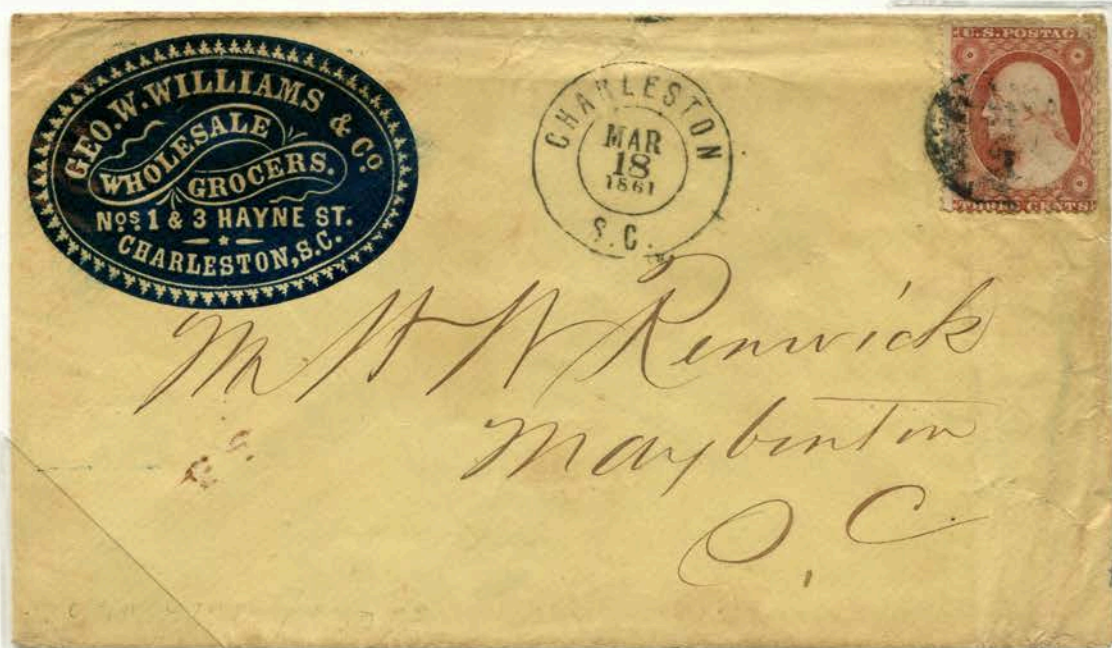 GEO. W. WILLIAMS & Co.
WHOLESALE
GROCERS.
Nos. 1 & 3 HAYNE ST.
CHARLESTON, S.C.
CHARLESTON
MAR
18
1861
S.C.
U.S. POSTAGE
CENTS
Mr W W Renwick
Maybinton
S. C.